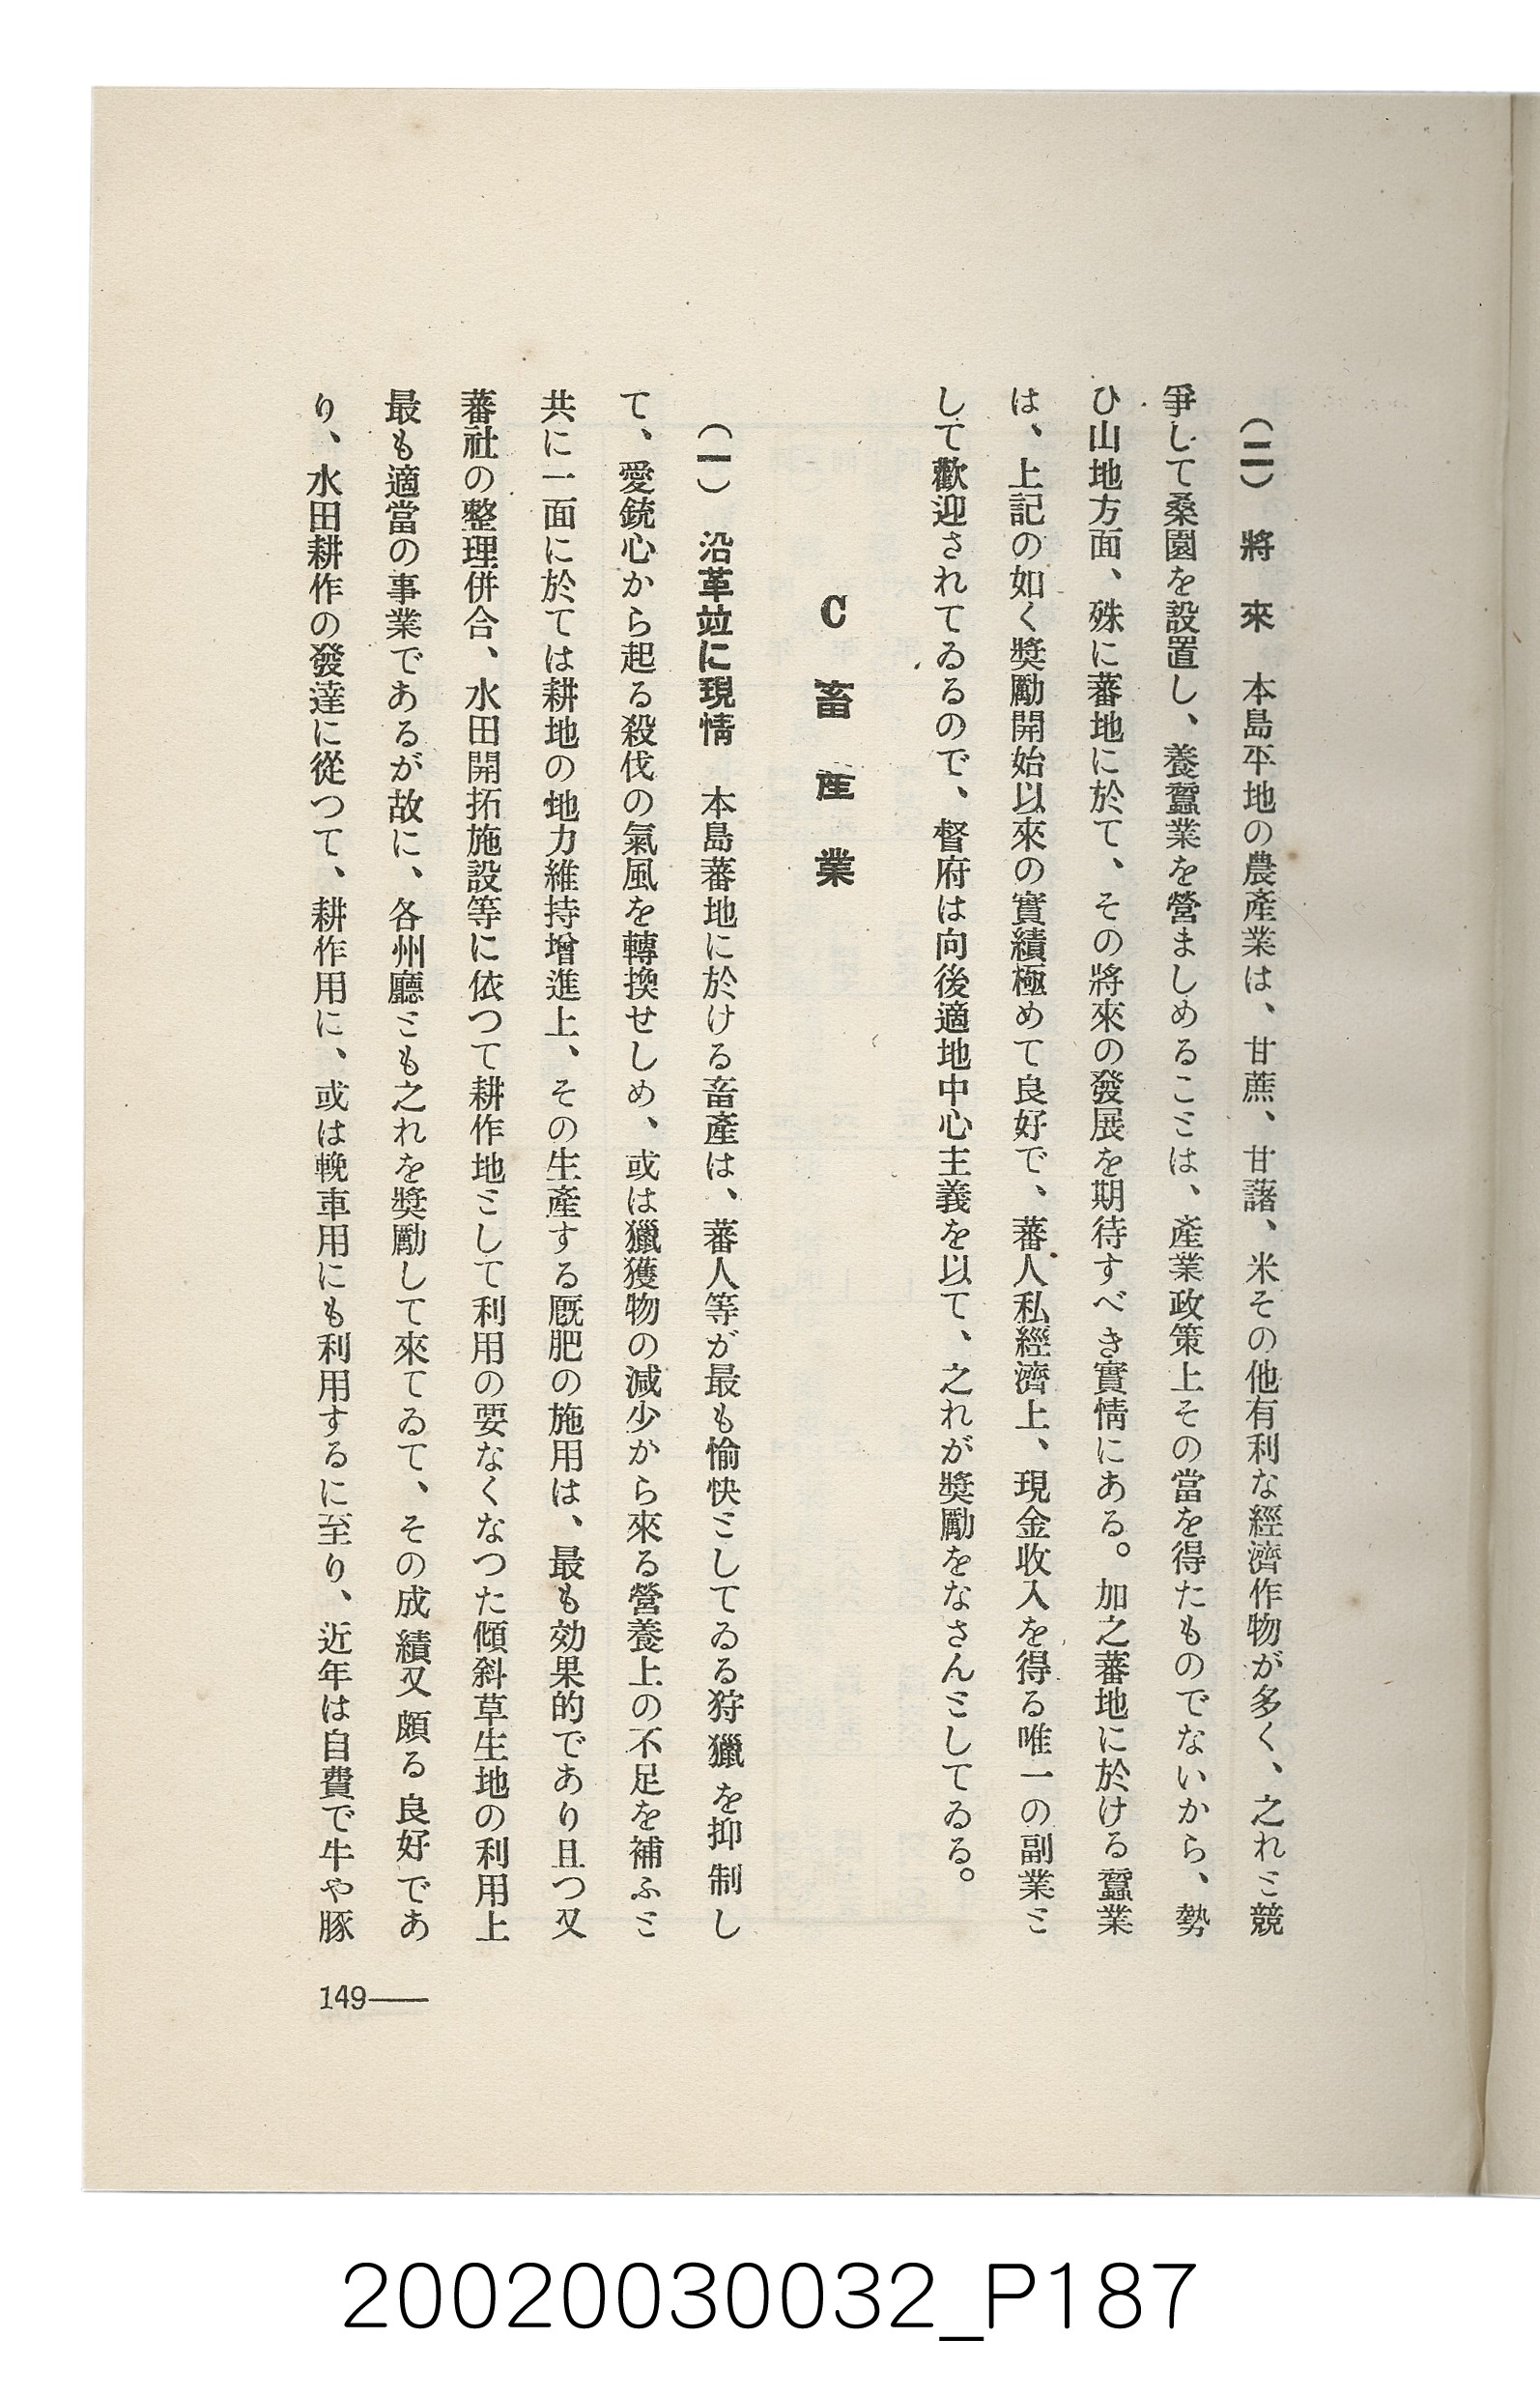 （二）　將　來　本島平地の農產業は、甘蔗、甘藷、米その他有利な經濟作物が多く、之れミ競
爭して桑園を設置し、養蠶業を營ましめるこミは、產業政策上その當を得たものでないから、勢
ひ山地方面、殊に蕃地に於て、その將來の發展を期待すべき實情にある。加之蕃地に於ける蠶業
は、上記の如く奬勵開始以來の實績極めて良好で、蕃人私經濟上、現金收入を得る唯一の副業ミ
して歡迎されてゐるので、督府は向後適地中心主義を以て、之れが奬勵をなさんミしてゐる。
C　畜　產　業
（一）　沿革竝に現情　本島蕃地に於ける畜產は、蕃人等が最も愉快ミしてゐる狩獵を抑制し
て、愛銃心から起る殺伐の氣風を轉換せしめ、或は獵獲物の減少から來る營養上の不足を補ふミ
共に一面に於ては耕地の地力維持增進上、その生產する厩肥の施用は、最も効果的であり且つ又
蕃社の整理併合、水田開拓施設等に依つて耕作地ミして利用の要なくなつた傾斜草生地の利用上
最も適當の事業であるが故に、各州廳ミも之れを奬勵して來てゐて、その成績又頗る良好であ
り、水田耕作の發達に從つて、耕作用に、或は輓車用にも利用するに至り、近年は自費で牛や豚
149——
20020030032_P187